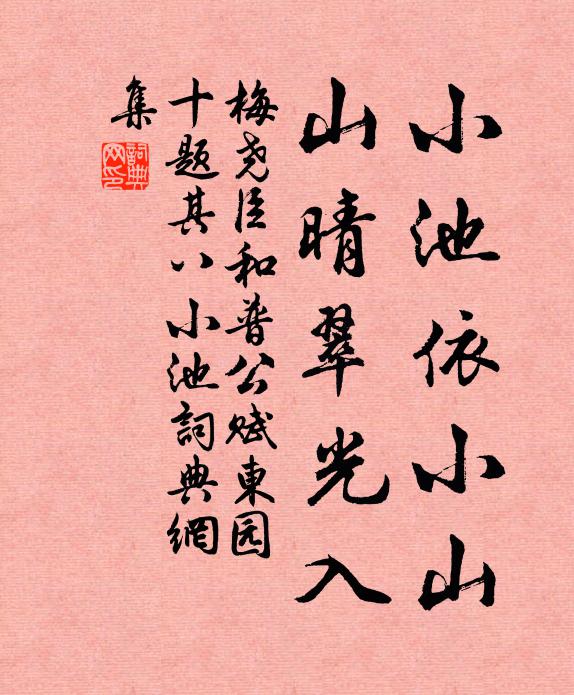 小池依小山
山晴翠光入
梅尧臣和普公赋東园
十题其八小池詞典網
集
詞典网印